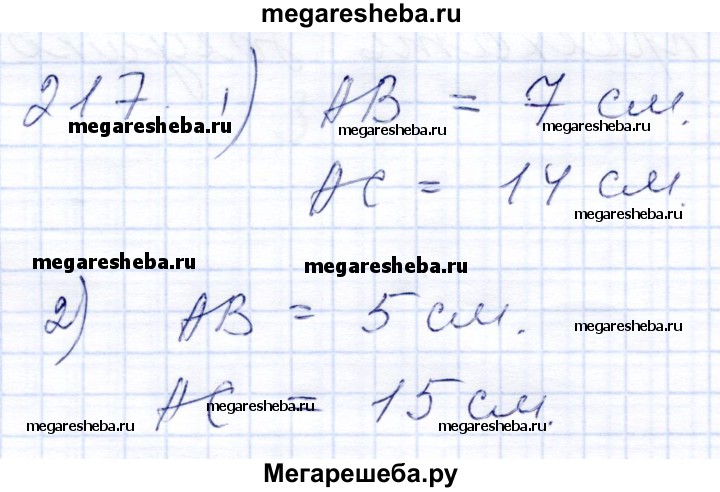 megaresheba.ru
217. 1) AB = 7 см.
megaresheba.ru megaresheba.ru megaresheba.ru
AC = 14 см.
megaresheba.ru
megaresheba.ru megaresheba.ru
2) AB = 5 см.
megaresheba.ru
AC = 15 см.
megaresheba.ru megaresheba.ru megaresheba.ru
Мегарешеба.ру